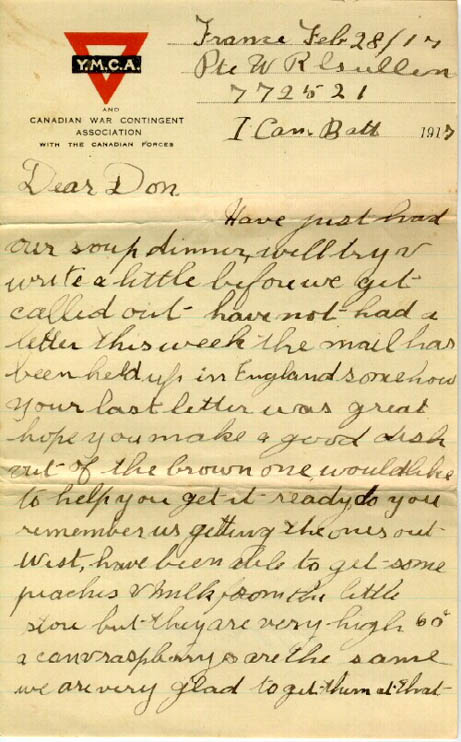 France Feb 28/17
Pte W R Gullen
772521
1 Can. Batt 1917
Y.M.C.A.
AND
CANADIAN WAR CONTINGENT
ASSOCIATION
WITH THE CANADIAN FORCES
Dear Don
Have just had
our soup dinner, will try &
write a little before we get
called out have not had a
letter this week the mail has
been held up in England somehow
your last letter was great
hope you make a good
out of the brown one, would like
to help you get it ready, do you
remember us getting the ones out
West, have been able to get some
peaches & milk from the little
store but they are very high 60¢
a can & raspberrys are the same
we are very glad to get them at that